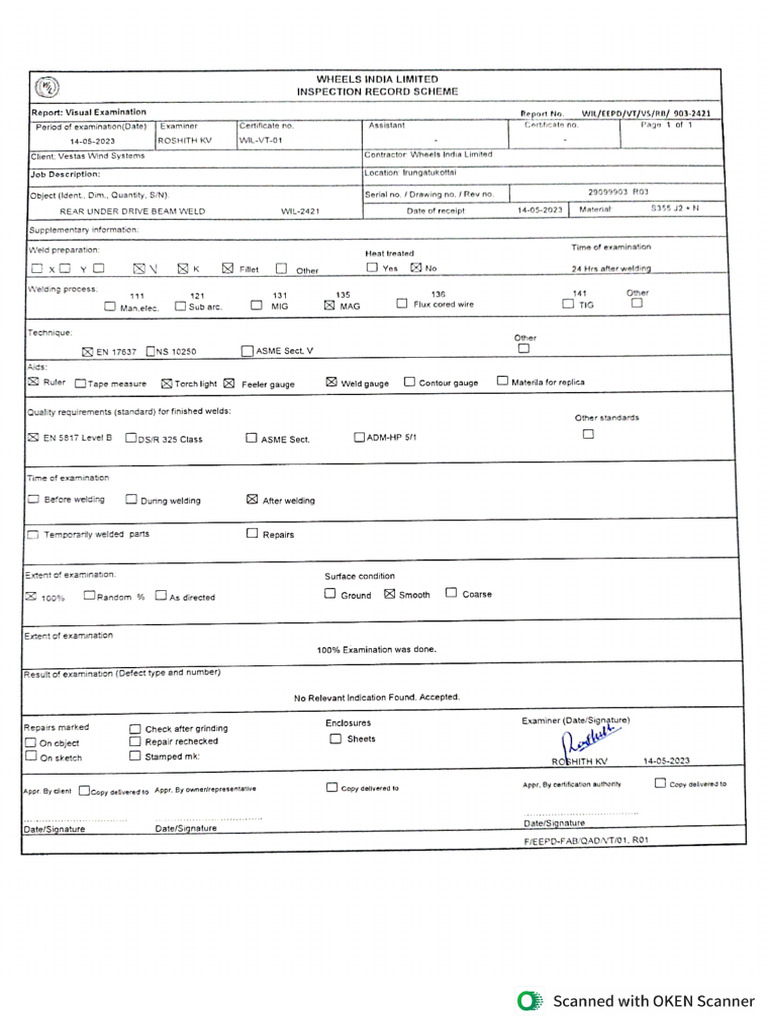 WHEELS INDIA LIMITED
INSPECTION RECORD SCHEME
Report: Visual Examination Report No. WIL/EEPD/VT/VS/RB/ 903-2421
Period of examination(Date) Examiner Certificate no. Assistant Certificate no. Page 1 of 1
14-05-2023 ROSHITH KV WIL-VT-01 - -
Client: Vestas Wind Systems Contractor Wheels India Limited
Job Description: Location: Irungatukottai
Object (Ident., Dim., Quantity, S/N). Serial no. / Drawing no. / Rev no. 29099903 R03
REAR UNDER DRIVE BEAM WELD WIL-2421 Date of receipt 14-05-2023 Material S355 J2 + N
Supplementary information:
Weld preparation: Heat treated Time of examination
☐ X ☐ Y ☐ ☒ V ☒ K ☒ Fillet ☐ Other ☐ Yes ☒ No 24 Hrs after welding
Welding process: 111 121 131 135 136 141 Other
☐ Man,elec. ☐ Sub arc. ☐ MIG ☒ MAG ☐ Flux cored wire ☐ TIG ☐
Technique: Other
☒ EN 17637 ☐ NS 10250 ☐ ASME Sect. V ☐
Aids:
☒ Ruler ☐ Tape measure ☒ Torch light ☒ Feeler gauge ☒ Weld gauge ☐ Contour gauge ☐ Materila for replica
Quality requirements (standard) for finished welds: Other standards
☒ EN 5817 Level B ☐ DS/R 325 Class ☐ ASME Sect. ☐ ADM-HP 5/1 ☐
Time of examination
☐ Before welding ☐ During welding ☒ After welding
☐ Temporarily welded parts ☐ Repairs
Extent of examination: Surface condition
☒ 100% ☐ Random % ☐ As directed ☐ Ground ☒ Smooth ☐ Coarse
Extent of examination
100% Examination was done.
Result of examination (Defect type and number)
No Relevant Indication Found. Accepted.
Repairs marked ☐ Check after grinding Enclosures Examiner (Date/Signature)
☐ On object ☐ Repair rechecked ☐ Sheets
☐ On sketch ☐ Stamped mk: ROSHITH KV 14-05-2023
Appr. By client ☐ Copy delivered to Appr. By owner/representative ☐ Copy delivered to Appr. By certification authority ☐ Copy delivered to
Date/Signature Date/Signature Date/Signature
F/EEPD-FAB/QAD/VT/01, R01
Scanned with OKEN Scanner